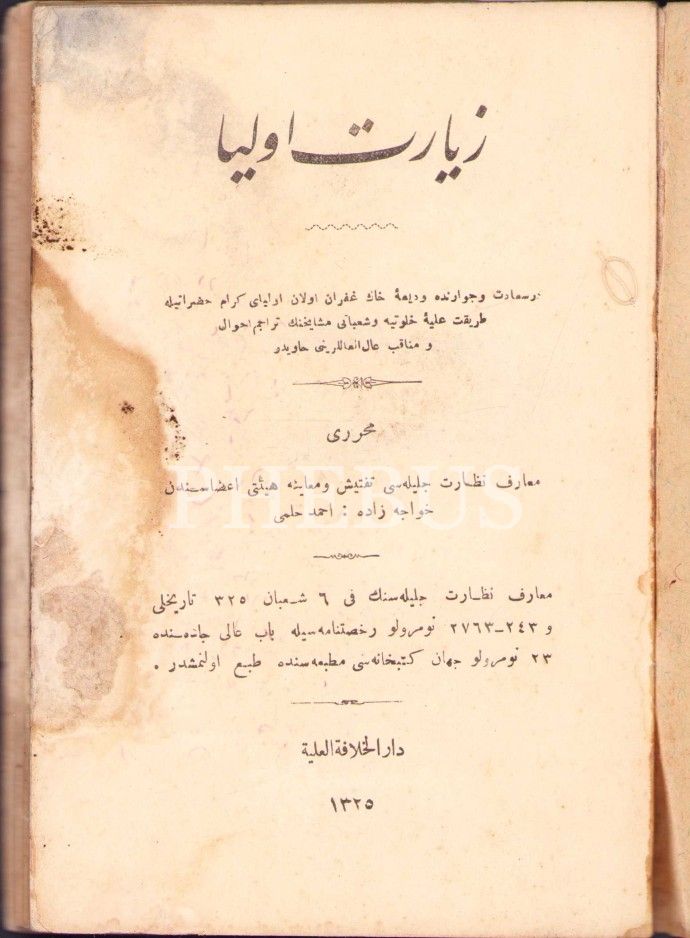 زيارت اوليا
درسعادت وجوارنده وديعۀ خاك غفران اولان اوليای كرام حضراتيله
طريقت عليۀ خلوتيه وشعبانی مشايخنك تراجم احوال
و مناقب عال العاللرينی حاويدر
محرری
معارف نظارت جليله‌سی تفتيش ومعاينه هيئتی اعضاسندن
خواجه زاده : احمد حلمی
PHEBUS
معارف نظارت جليله‌سنك فی ٦ شعبان ٣٢٥ تاريخلی
و ٢٤٣-٢٧٦٣ نومرولو رخصتنامه‌سيله باب عالی جاده‌سنده
٢٣ نومرولو جهان كتبخانه‌سی مطبعه‌سنده طبع اولنمشدر .
دار الخلافة العلية
١٣٢٥